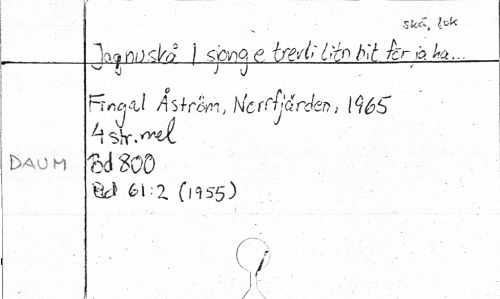 skä, lok
Jag nu skå I sjonge trevli litn bit för ja ha...
Fingal Åström, Norrfjärden, 1965
4 str. mel
DAUM Bd 800
Bd 61:2 (1955)